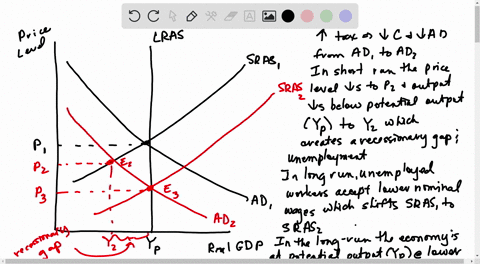 Price
Level
LRAS
SRAS1
SRAS2
P1
P2
P3
E2
E3
AD1
AD2
Y2
YP
Real GDP
recessionary
gap
↑ tax ⇒ ↓ C & ↓ AD
from AD1 to AD2
In short run the price
level ↓s to P2 & output
↓s below potential output
(YP) to Y2 which
creates a recessionary gap;
unemployment
In long run, unemployed
workers accept lower nominal
wages which shifts SRAS1 to
SRAS2
In the long-run the economy is
at potential output (YP) @ lower